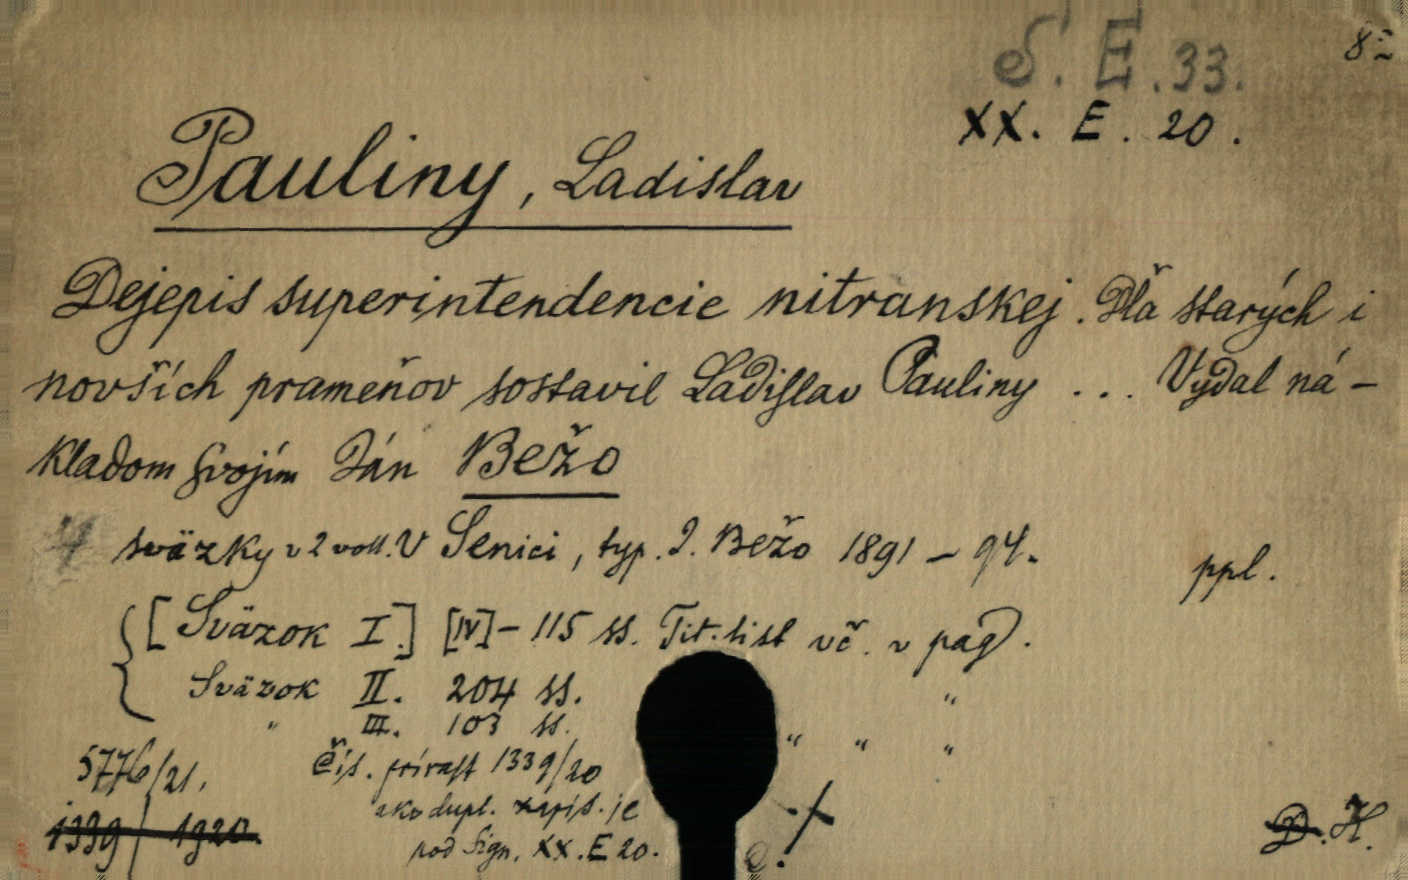 S. E. 33.
8°
XX. E. 20.
Pauliny, Ladislav
Dejepis superintendencie nitranskej. Dľa starých i
novších prameňov sostavil Ladislav Pauliny ... Vydal ná-
kladom svojím Ján Bežo
4 sväzky v 2 voll. V Senici, typ. J. Bežo 1891 – 94.
ppl.
[Sväzok I.] [IV] – 115 ss. Tit. list vč. v pag.
Sväzok II. 204 ss. "
" III. 103 ss. " " "
5776/21. Čís. prírast 1339/20
ako dupl. zapís. je
1339 | 1920. pod sign. XX. E 20.
D. H.